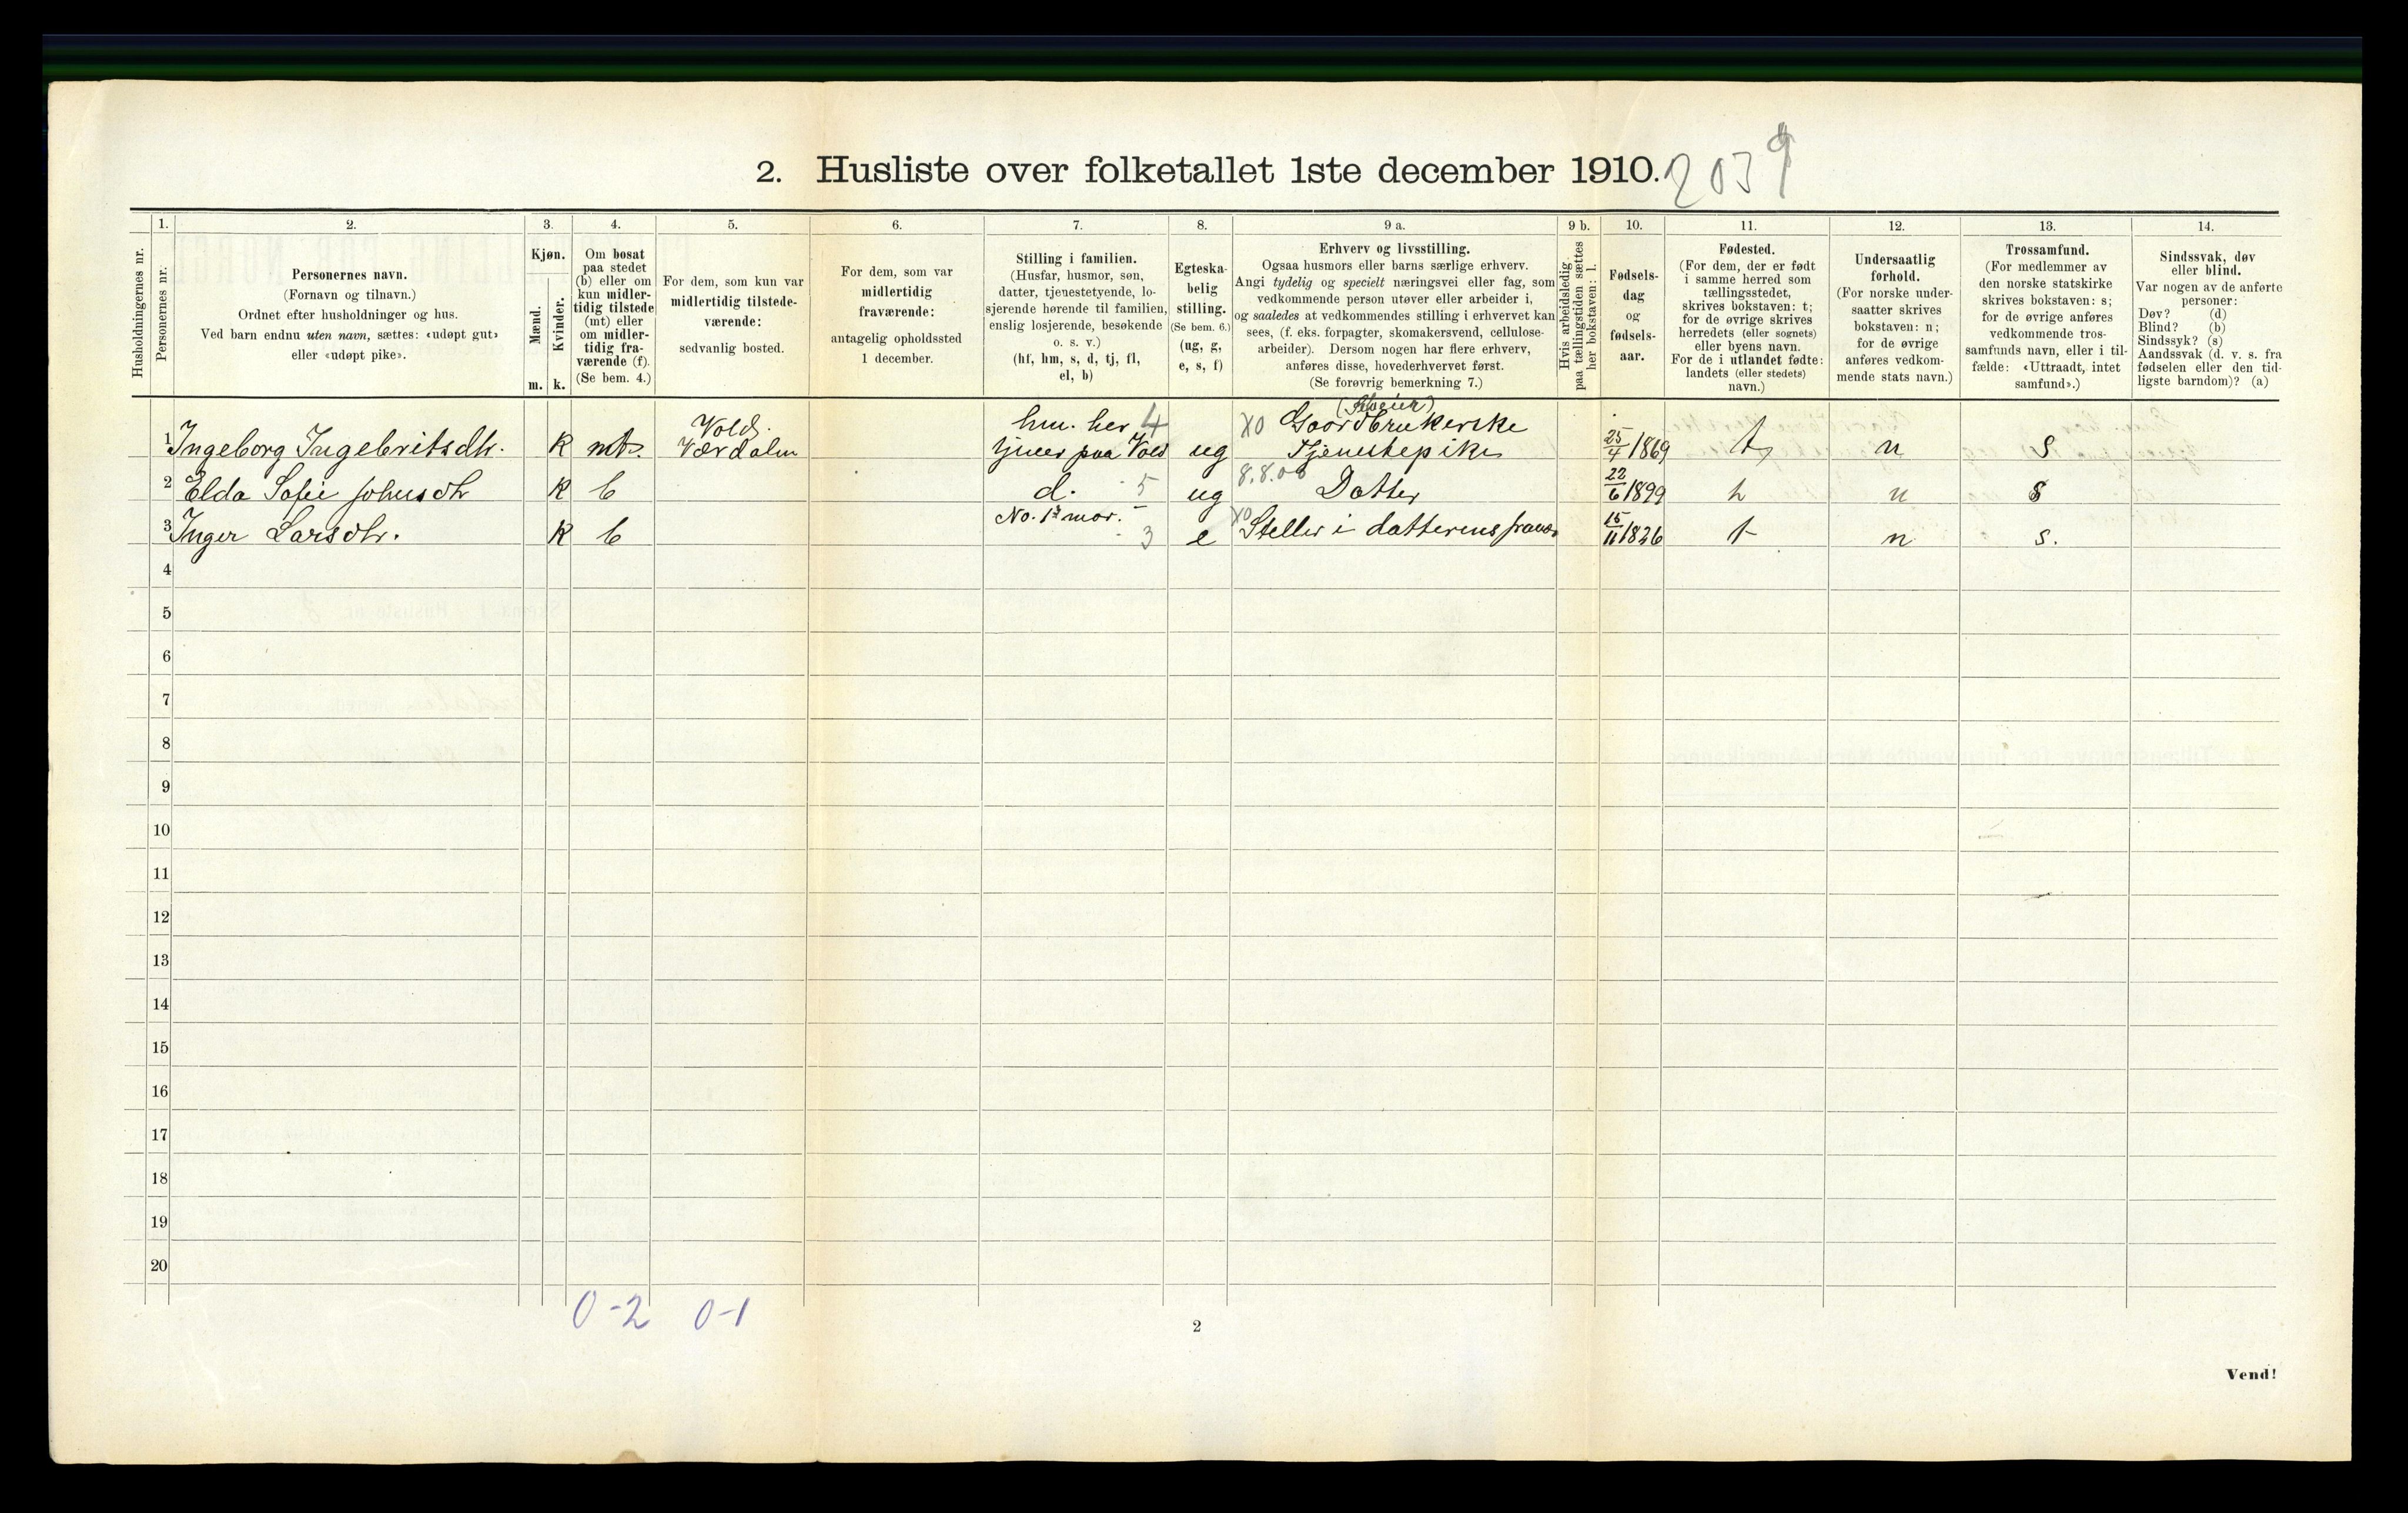 2. Husliste over folketallet 1ste december 1910. 2039
Husholdningernes nr.
1.
Personernes nr.
2.
Personernes navn.
(Fornavn og tilnavn.)
Ordnet efter husholdninger og hus.
Ved barn endnu uten navn, sættes: «udøpt gut»
eller «udøpt pike».
3.
Kjøn.
Mænd.
Kvinder.
m. k.
4.
Om bosat
paa stedet
(b) eller om
kun midler-
tidig tilstede
(mt) eller
om midler-
tidig fra-
værende (f).
(Se bem. 4.)
5.
For dem, som kun var
midlertidig tilstede-
værende:
sedvanlig bosted.
6.
For dem, som var
midlertidig
fraværende:
antagelig opholdssted
1 december.
7.
Stilling i familien.
(Husfar, husmor, søn,
datter, tjenestetyende, lo-
sjerende hørende til familien,
enslig losjerende, besøkende
o. s. v.)
(hf, hm, s, d, tj, fl,
el, b)
8.
Egteska-
belig
stilling.
(Se bem. 6.)
(ug, g,
e, s, f)
9 a.
Erhverv og livsstilling.
Ogsaa husmors eller barns særlige erhverv.
Angi tydelig og specielt næringsvei eller fag, som
vedkommende person utøver eller arbeider i,
og saaledes at vedkommendes stilling i erhvervet kan
sees, (f. eks. forpagter, skomakersvend, cellulose-
arbeider). Dersom nogen har flere erhverv,
anføres disse, hovederhvervet først.
(Se forøvrig bemerkning 7.)
9 b.
Hvis arbeidsledig
paa tællingstiden sættes
her bokstaven: l.
10.
Fødsels-
dag
og
fødsels-
aar.
11.
Fødested.
(For dem, der er født
i samme herred som
tællingsstedet,
skrives bokstaven: t;
for de øvrige skrives
herredets (eller sognets)
eller byens navn.
For de i utlandet fødte:
landets (eller stedets)
navn.)
12.
Undersaatlig
forhold.
(For norske under-
saatter skrives
bokstaven: n;
for de øvrige
anføres vedkom-
mende stats navn.)
13.
Trossamfund.
(For medlemmer av
den norske statskirke
skrives bokstaven: s;
for de øvrige anføres
vedkommende tros-
samfunds navn, eller i til-
fælde: «Uttraadt, intet
samfund».)
14.
Sindssvak, døv
eller blind.
Var nogen av de anførte
personer:
Døv? (d)
Blind? (b)
Sindssyk? (s)
Aandssvak (d. v. s. fra
fødselen eller den tid-
ligste barndom)? (a)
Vold. hm. her 4 X0 Gaardbrukerske
1 Ingeborg Ingebritsdtr. k mt. Værdalen tjener paa Vold ug Tjenestepike 25/4 1869 t n s
2 Elda Sofie Johnsdtr k b d. 5 ug 8.8.00 Datter 22/6 1899 t n s
No. 1s mor.
3 Inger Larsdtr. k b 3 e X0 Steller i datterens fravær 15/11 1826 t n s.
4
5
6
7
8
9
10
11
12
13
14
15
16
17
18
19
20
0-2 0-1
2
Vend!